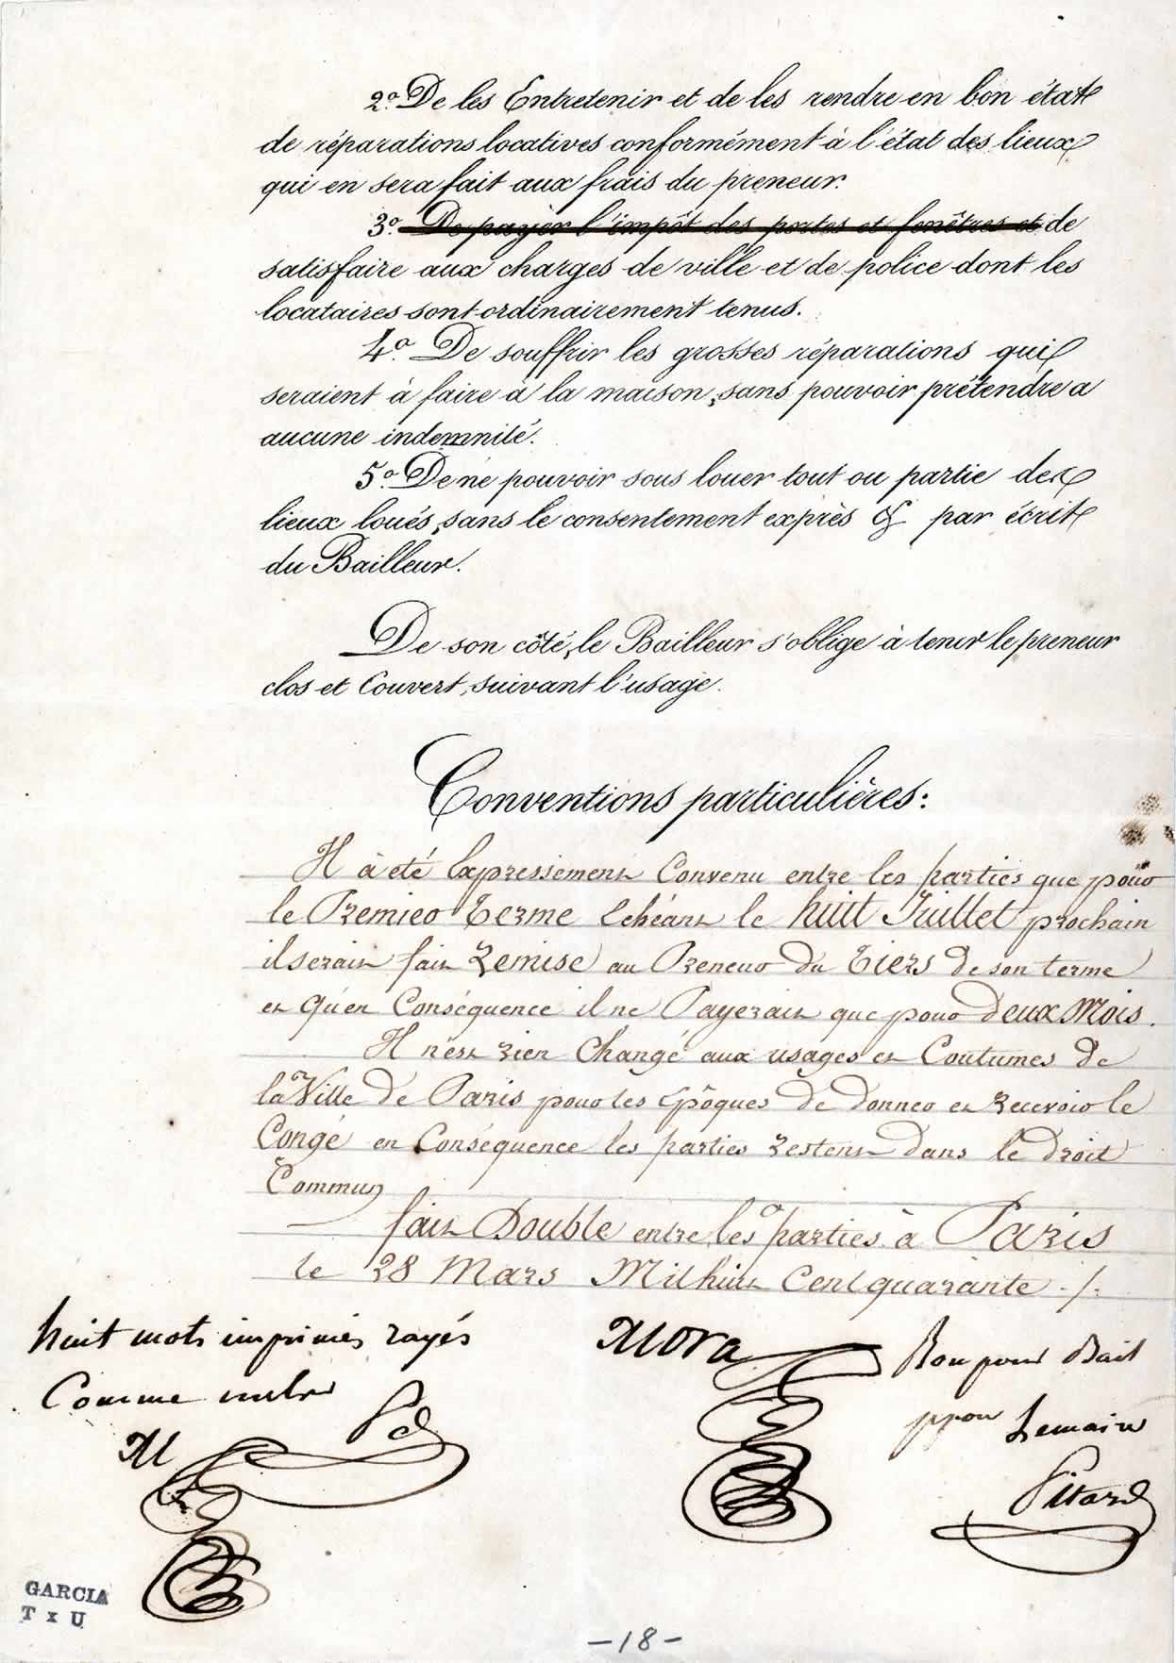 2.º De les Entretenir et de les rendre en bon état
de réparations locatives conformément à l'état des lieux
qui en sera fait aux frais du preneur.
3.º De payer l'impôt des portes et fenêtres et de
satisfaire aux charges de ville et de police dont les
locataires sont ordinairement tenus.
4.º De souffrir les grosses réparations qui
seraient à faire à la maison, sans pouvoir prétendre a
aucune indemnité.
5.º De ne pouvoir sous louer tout ou partie des
lieux loués, sans le consentement exprès & par écrit
du Bailleur.
De son côté, le Bailleur s'oblige à tenir le preneur
clos et Couvert, suivant l'usage.
Conventions particulières:
Il à été Expressement Convenu entre les parties que pour
le Premier Terme Echéant le huit Juillet prochain
il serait fait Remise au Preneur du Tiers de son terme
et qu'en Conséquence il ne Payerait que pour Deux Mois.
Il n'est rien Changé aux usages et Coutumes de
la Ville de Paris pour les Epôques de donner et Recevoir le
Congé en Conséquence les parties Restent Dans le Droit
Commun
fait Double entre les parties à Paris
le 28 Mars Mil huit Cent quarante ./.
huit mots imprimés rayés
Comme nuls
M
Pd
Mora
Bon pour Bail
ppon Lemaire
Pitard
GARCIA
T x U
-18-